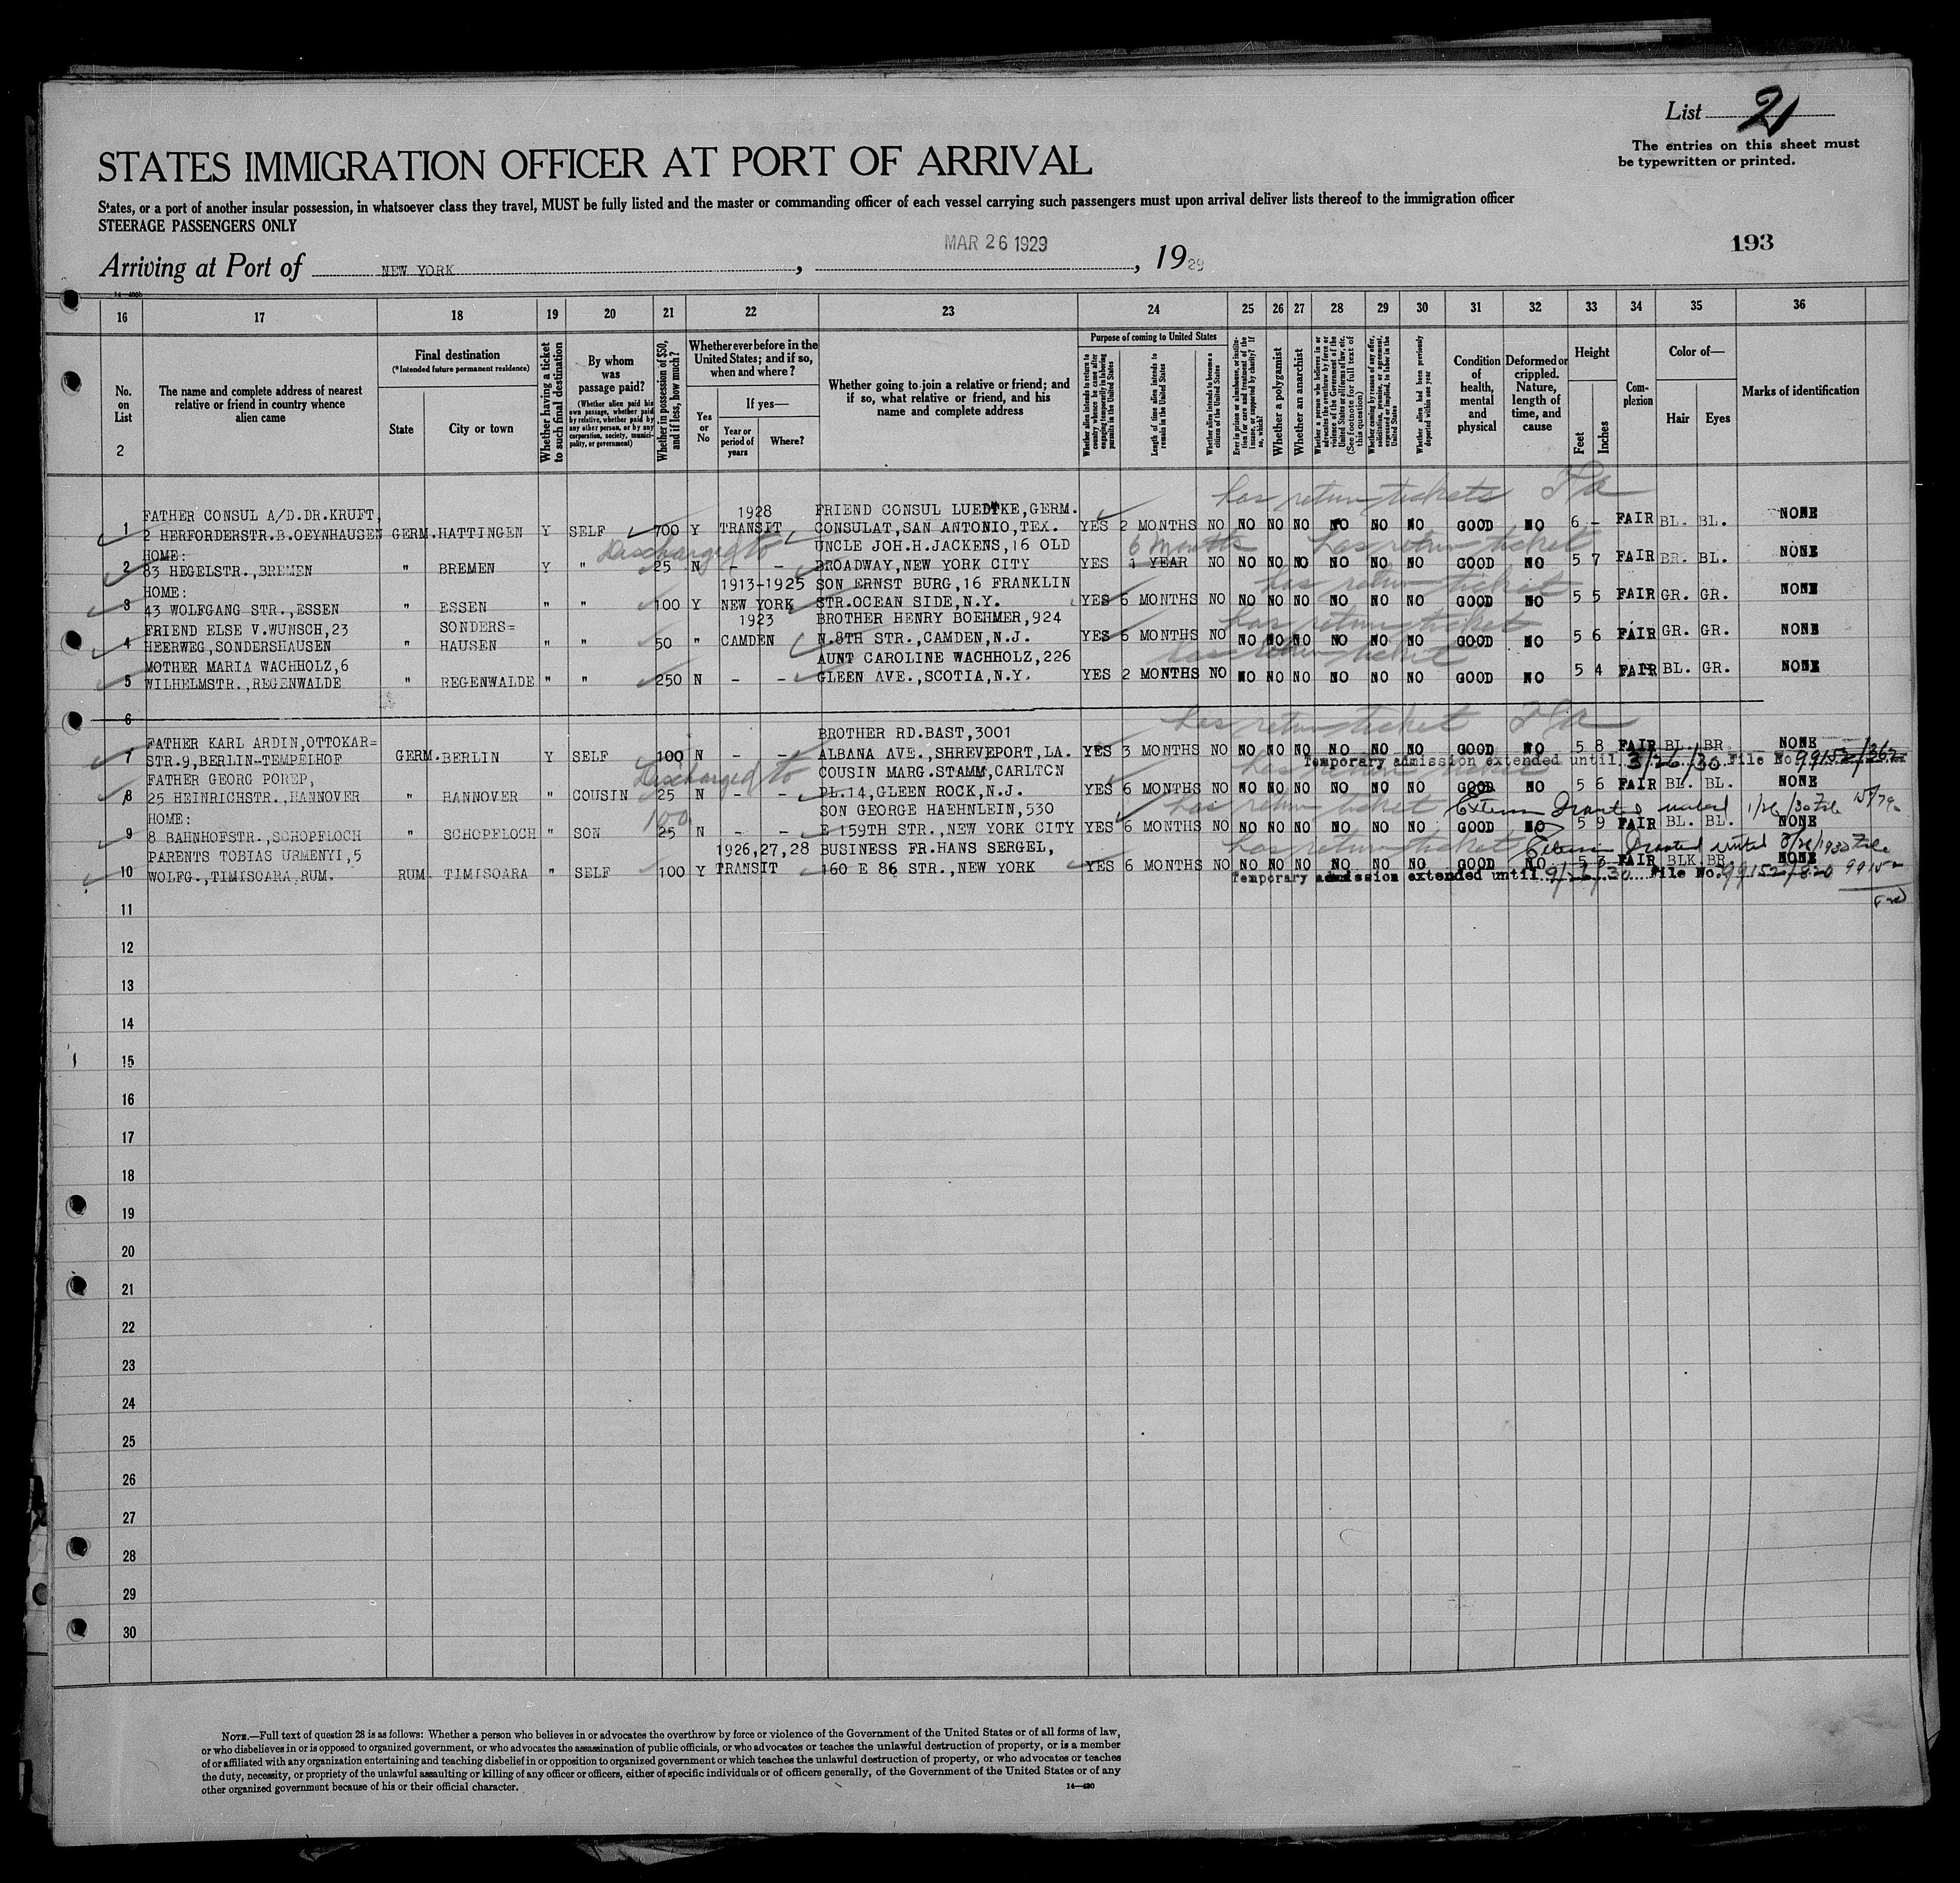 List 21
The entries on this sheet must
be typewritten or printed.
STATES IMMIGRATION OFFICER AT PORT OF ARRIVAL
States, or a port of another insular possession, in whatsoever class they travel, MUST be fully listed and the master or commanding officer of each vessel carrying such passengers must upon arrival deliver lists thereof to the immigration officer
STEERAGE PASSENGERS ONLY
193
Arriving at Port of NEW YORK, MAR 26 1929, 1929
16 17 18 19 20 21 22 23 24 25 26 27 28 29 30 31 32 33 34 35 36
No. on List
2
The name and complete address of nearest relative or friend in country whence alien came
Final destination
(*Intended future permanent residence)
State
City or town
Whether having a ticket to such final destination
By whom was passage paid?
(Whether alien paid his own passage, whether paid by relative, whether paid by any other person, or by any corporation, society, municipality, or government)
Whether in possession of $50, and if less, how much?
Whether ever before in the United States; and if so, when and where?
Yes or No
If yes—
Year or period of years
Where?
Whether going to join a relative or friend; and if so, what relative or friend, and his name and complete address
Purpose of coming to United States
Whether alien intends to return to country whence he came after engaging temporarily in laboring pursuits in the United States
Length of time alien intends to remain in the United States
Whether alien intends to become a citizen of the United States
Ever in prison or almshouse, or institution for care and treatment of the insane, or supported by charity? If so, which?
Whether a polygamist
Whether an anarchist
Whether a person who believes in or advocates the overthrow by force or violence of the Government of the United States or all forms of law, etc. (See footnote for full text of this question)
Whether coming by reason of any offer, solicitation, promise, or agreement, expressed or implied, to labor in the United States
Whether alien had been previously deported within one year
Condition of health, mental and physical
Deformed or crippled. Nature, length of time, and cause
Height
Feet
Inches
Complexion
Color of—
Hair
Eyes
Marks of identification
has return tickets
1 FATHER CONSUL A/D.DR.KRUFT, 1928 FRIEND CONSUL LUEDTKE, GERM.
2 HERFORDERSTR.B.OEYNHAUSEN GERM. HATTINGEN Y SELF 700 Y TRANSIT CONSULAT, SAN ANTONIO, TEX. YES 2 MONTHS NO NO NO NO NO NO NO GOOD NO 6 - FAIR BL. BL. NONE
Discharged to 6 months has return ticket
2 HOME: UNCLE JOH.H.JACKENS,16 OLD
83 HEGELSTR.,BREMEN " BREMEN Y " 25 N - - BROADWAY,NEW YORK CITY YES 1 YEAR NO NO NO NO NO NO NO GOOD NO 5 7 FAIR BR. BL. NONE
has return ticket
3 HOME: 1913-1925 SON ERNST BURG,16 FRANKLIN
43 WOLFGANG STR.,ESSEN " ESSEN " " 100 Y NEW YORK STR.OCEAN SIDE,N.Y. YES 6 MONTHS NO NO NO NO NO NO NO GOOD NO 5 5 FAIR GR. GR. NONE
has return ticket
4 FRIEND ELSE V.WUNSCH,23 SONDERS= 1923 BROTHER HENRY BOEHMER,924
HEERWEG,SONDERSHAUSEN " HAUSEN " " 50 " CAMDEN N.8TH STR.,CAMDEN,N.J. YES 6 MONTHS NO NO NO NO NO NO NO GOOD NO 5 6 FAIR GR. GR. NONE
has return ticket
5 MOTHER MARIA WACHHOLZ,6 AUNT CAROLINE WACHHOLZ,226
WILHELMSTR.,REGENWALDE " REGENWALDE " " 250 N - - GLEEN AVE.,SCOTIA,N.Y. YES 2 MONTHS NO NO NO NO NO NO NO GOOD NO 5 4 FAIR BL. GR. NONE
6
has return ticket
7 FATHER KARL ARDIN,OTTOKAR= BROTHER RD.BAST,3001
STR.9,BERLIN-TEMPELHOF GERM. BERLIN Y SELF 100 N - - ALBANA AVE.,SHREVEPORT,LA. YES 3 MONTHS NO NO NO NO NO NO NO GOOD NO 5 8 FAIR BL. BR. NONE
Temporary admission extended until 3/26/30 File No 99152/362
Discharged to
8 FATHER GEORG POREP, COUSIN MARG.STAMM,CARLTON
25 HEINRICHSTR.,HANNOVER " HANNOVER " COUSIN 25 N - - PL.14,GLEEN ROCK,N.J. YES 6 MONTHS NO NO NO NO NO NO NO GOOD NO 5 6 FAIR BL. BL. NONE
100 has return ticket Extension Granted until 1/26/30 File
9 HOME: SON GEORGE HAEHNLEIN,530
8 BAHNHOFSTR.,SCHOPFLOCH " SCHOPFLOCH " SON 25 N - - E 159TH STR.,NEW YORK CITY YES 6 MONTHS NO NO NO NO NO NO NO GOOD NO 5 9 FAIR BL. BL. NONE
has return ticket Extension Granted until 3/26/1930 File
10 PARENTS TOBIAS URMENYI,5 1926,27,28 BUSINESS FR.HANS SERGEL,
WOLFG.,TIMISOARA,RUM. RUM. TIMISOARA " SELF 100 Y TRANSIT 160 E 86 STR.,NEW YORK YES 6 MONTHS NO NO NO NO NO NO NO GOOD NO 5 3 FAIR BLK BR. NONE
Temporary admission extended until 9/26/30 File No. 99152/820
11
12
13
14
15
16
17
18
19
20
21
22
23
24
25
26
27
28
29
30
NOTE.—Full text of question 28 is as follows: Whether a person who believes in or advocates the overthrow by force or violence of the Government of the United States or of all forms of law,
or who disbelieves in or is opposed to organized government, or who advocates the assassination of public officials, or who advocates or teaches the unlawful destruction of property, or is a member
of or affiliated with any organization entertaining and teaching disbelief in or opposition to organized government or which teaches the unlawful destruction of property, or who advocates or teaches
the duty, necessity, or propriety of the unlawful assaulting or killing of any officer or officers, either of specific individuals or of officers generally, of the Government of the United States or of any
other organized government because of his or their official character.
14—480